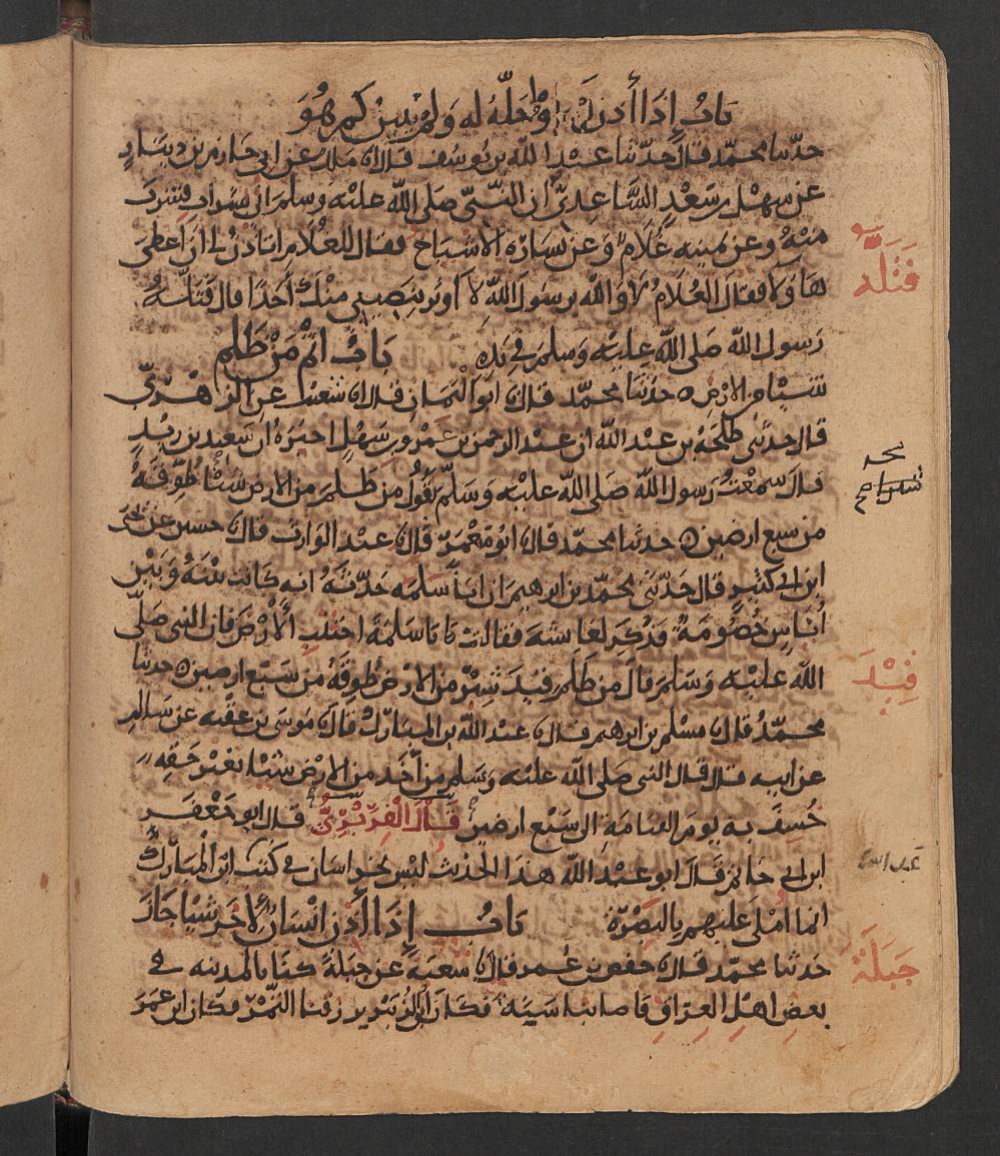 باب إذا أذن له أو أحله له ولم يبين كم هو
حدثنا محمد قال حدثنا عبد الله بن يوسف قال انا ملك عن ابى حازم بن دينار
عن سهل بن سعد الساعدى ان النبى صلى الله عليه وسلم اتى بشراب فشرب
منه وعن يمينه غلام وعن يساره الاشياخ فقال للغلام اتاذن لى ان اعطى
هاولا فقال الغلام لا والله يرسول الله لا اوثر بنصيبى منك أحدا قال فتله
رسول الله صلى الله عليه وسلم فى يده باب اثم من ظلم
شيئا من الارض حدثنا محمد قال نا ابو اليمان قال انا شعيب عن الزهرى
قال حدثنى طلحة بن عبد الله ان عبد الرحمن بن عمرو بن سهل اخبره ان سعيد بن زيد
قال سمعت رسول الله صلى الله عليه وسلم يقول من ظلم من الارض شيئا طوقه
من سبع ارضين حدثنا محمد قال نا ابو معمر قال نا عبد الوارث قال نا حسين عن يحيى
ابن ابى كثير قال حدثنى محمد بن ابرهيم ان ابا سلمه حدثه انه كانت بينه وبين
أناس خصومة فذكر لعائشة فقالت يا با سلمة اجتنب الأرض فان النبى صلى
الله عليه وسلم قال من ظلم قيد شبر من الارض طوقه من سبع ارضين حدثنا
محمد قال نا مسلم بن ابرهيم قال نا عبد الله بن المبارك قال نا موسى بن عقبه عن سالم
عن ابيه قال قال النبى صلى الله عليه وسلم من أخذ من الارض شيئا بغير حقه
خسف به يوم القيامة الى سبع ارضين قال الفربرى قال ابو جعفر
ابن ابى حاتم قال ابو عبد الله هذا الحديث ليس بخراسان فى كتب ابن المبارك
انما أملى عليهم بالبصرة باب إذا أذن إنسان لاخر شيا جاز
حدثنا محمد قال نا حفص بن عمر قال نا شعبة عن جبلة كنا بالمدينه فى
بعض اهل العراق فاصابنا سنة فكان ابن الزبير يرزقنا التمر فكان ابن عمر
فتله
قيد
جبلة